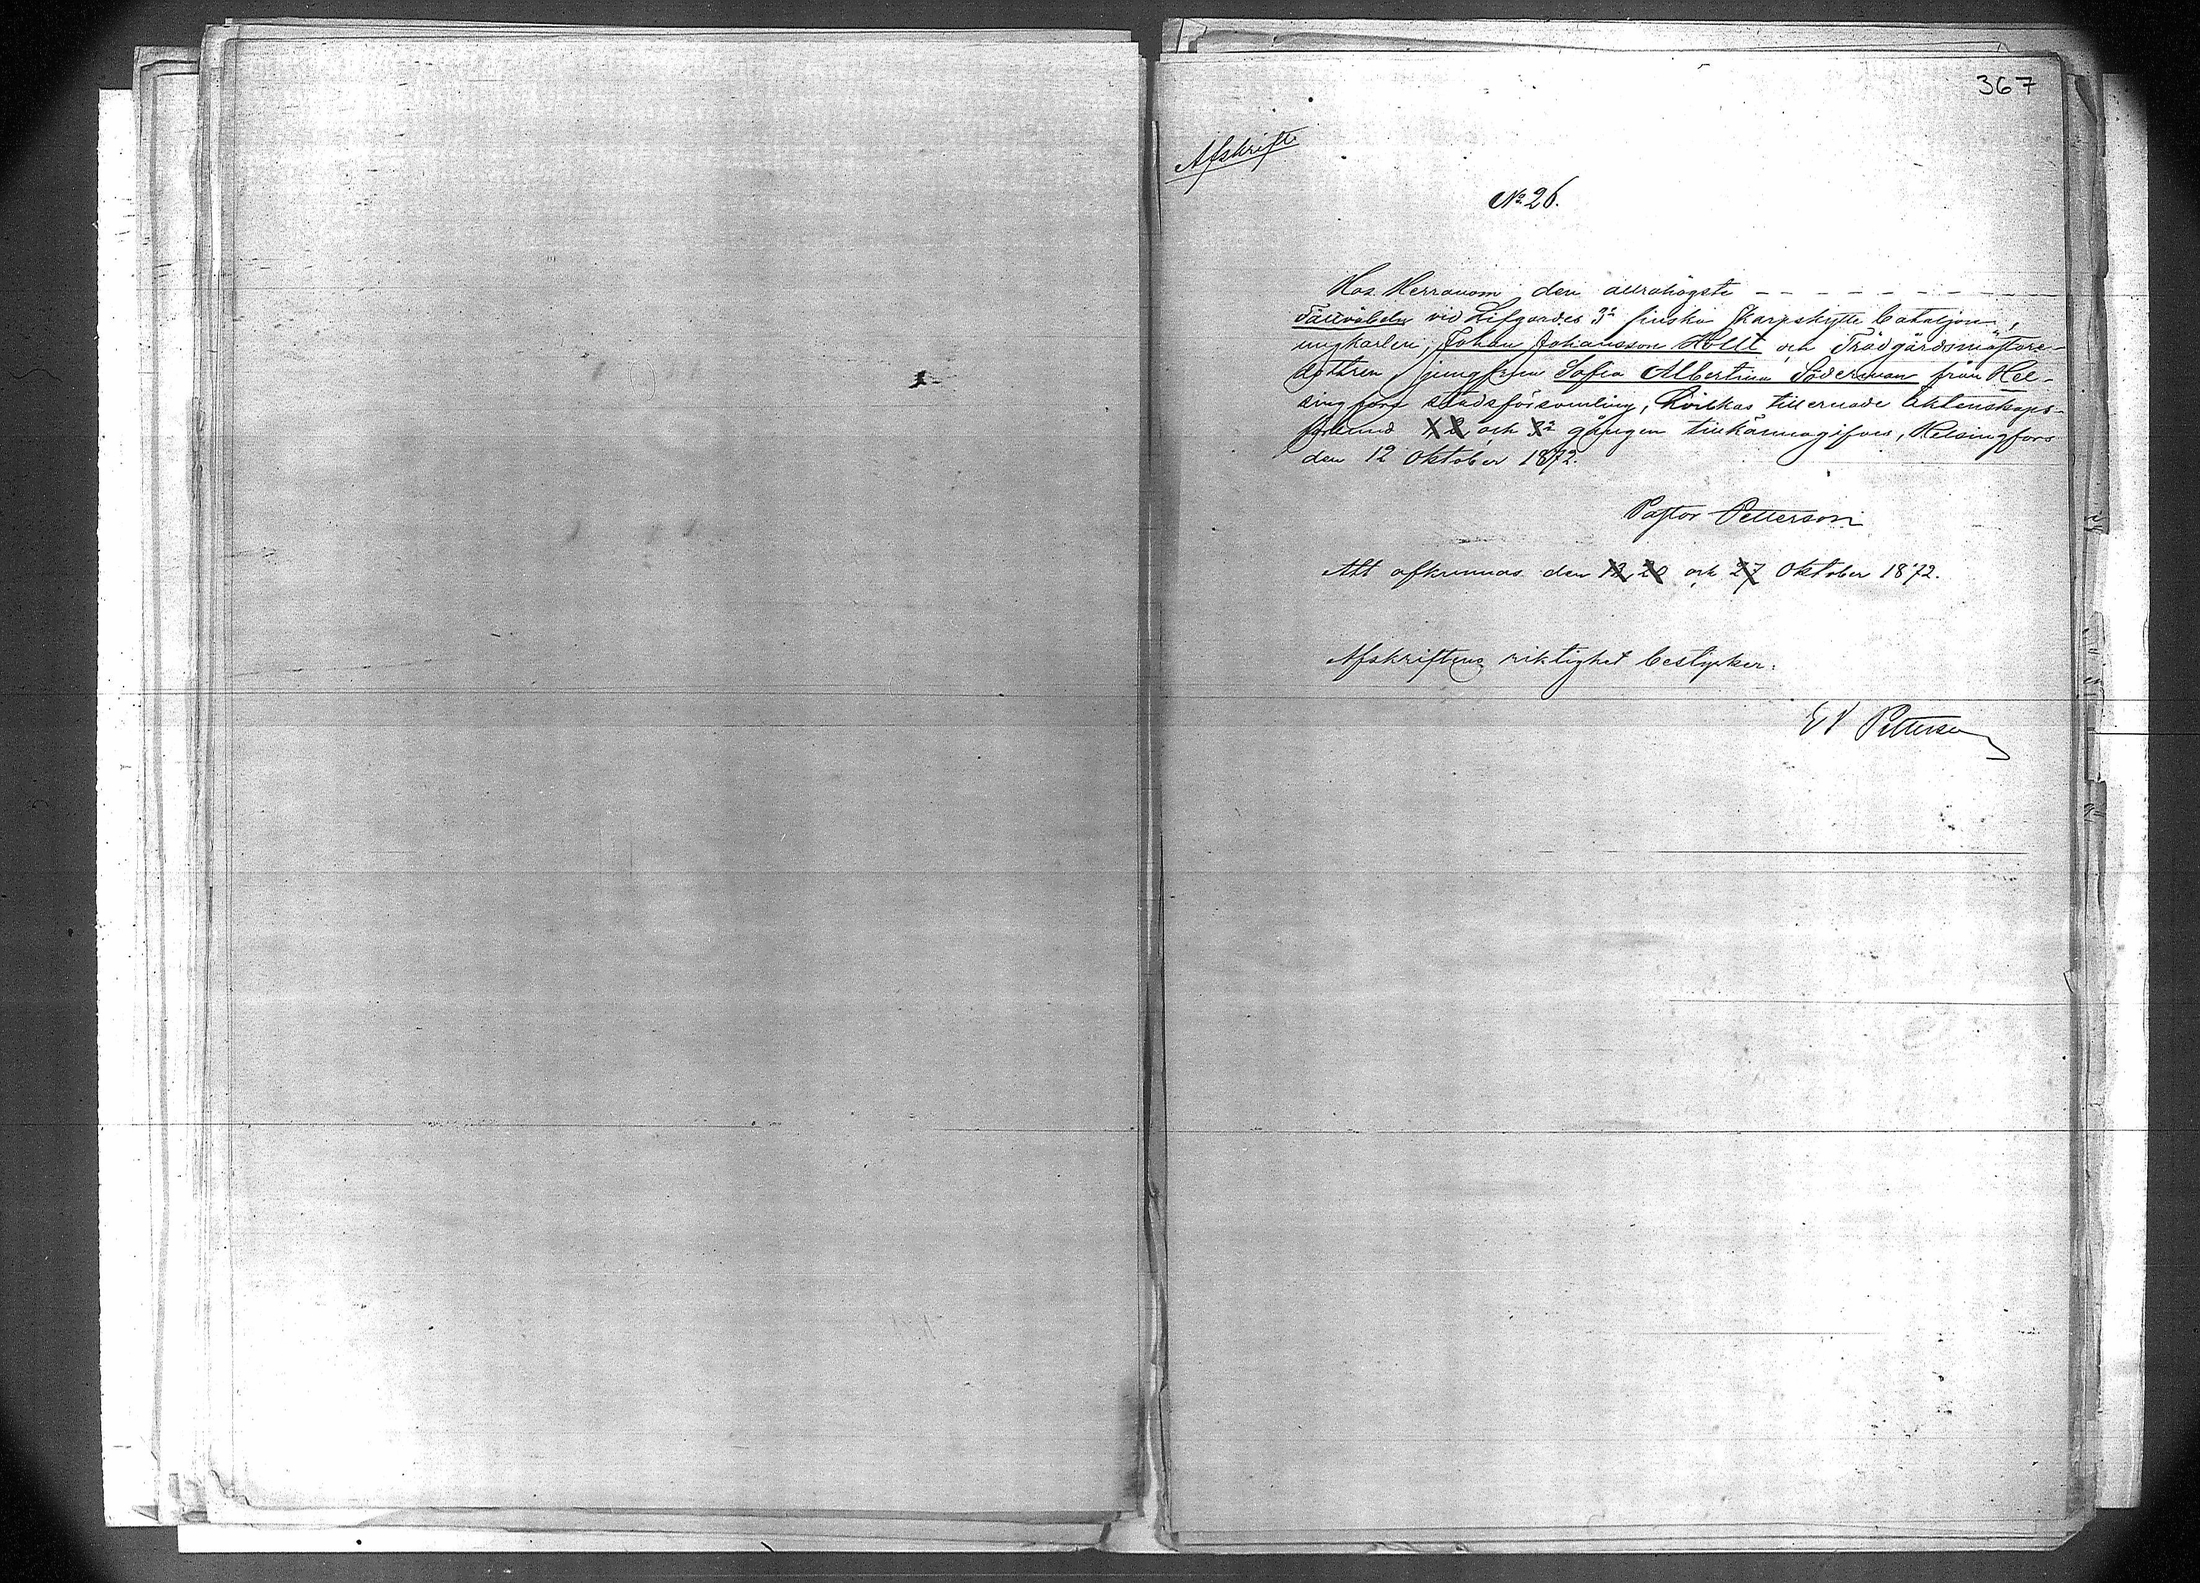 367
Afskrift
No 26.
Hos Herranom den allrahögste - - - - - - -
Fältväbeln vid Lifgardes 3e finska Skarpskytte bataljon,
ungkarlen, Johan Johansson Hollt och Trädgårdsmästare-
dottren, jungfrun Sofia Albertina Söderman från Hel-
singfors stadsförsamling, hvilkas tillernade Äktenskaps-
förbund 1, 2, och 3e gången tillkännagifves, Helsingfors
den 12 Oktober 1872.
Pastor Petterson
Att afkunnas den 13, 20 och 27 Oktober 1872.
Afskriftens riktighet bestyrker:
E V Petterson